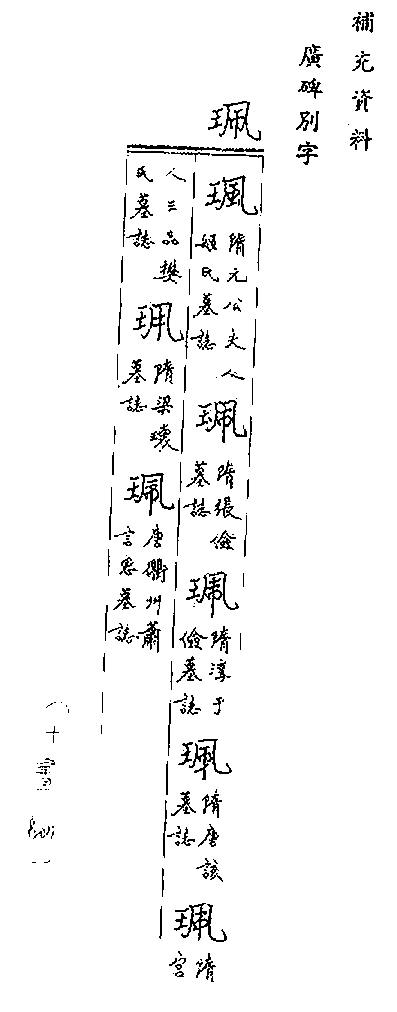 補充資料
廣碑別字
珮
珮隋元公夫人
姬氏墓誌
珮隋張儉
墓誌
珮隋淳于
儉墓誌
珮隋唐該
墓誌
珮隋宮
人三品樊
氏墓誌
珮隋梁瓌
墓誌
珮唐衢州蕭
言思墓誌